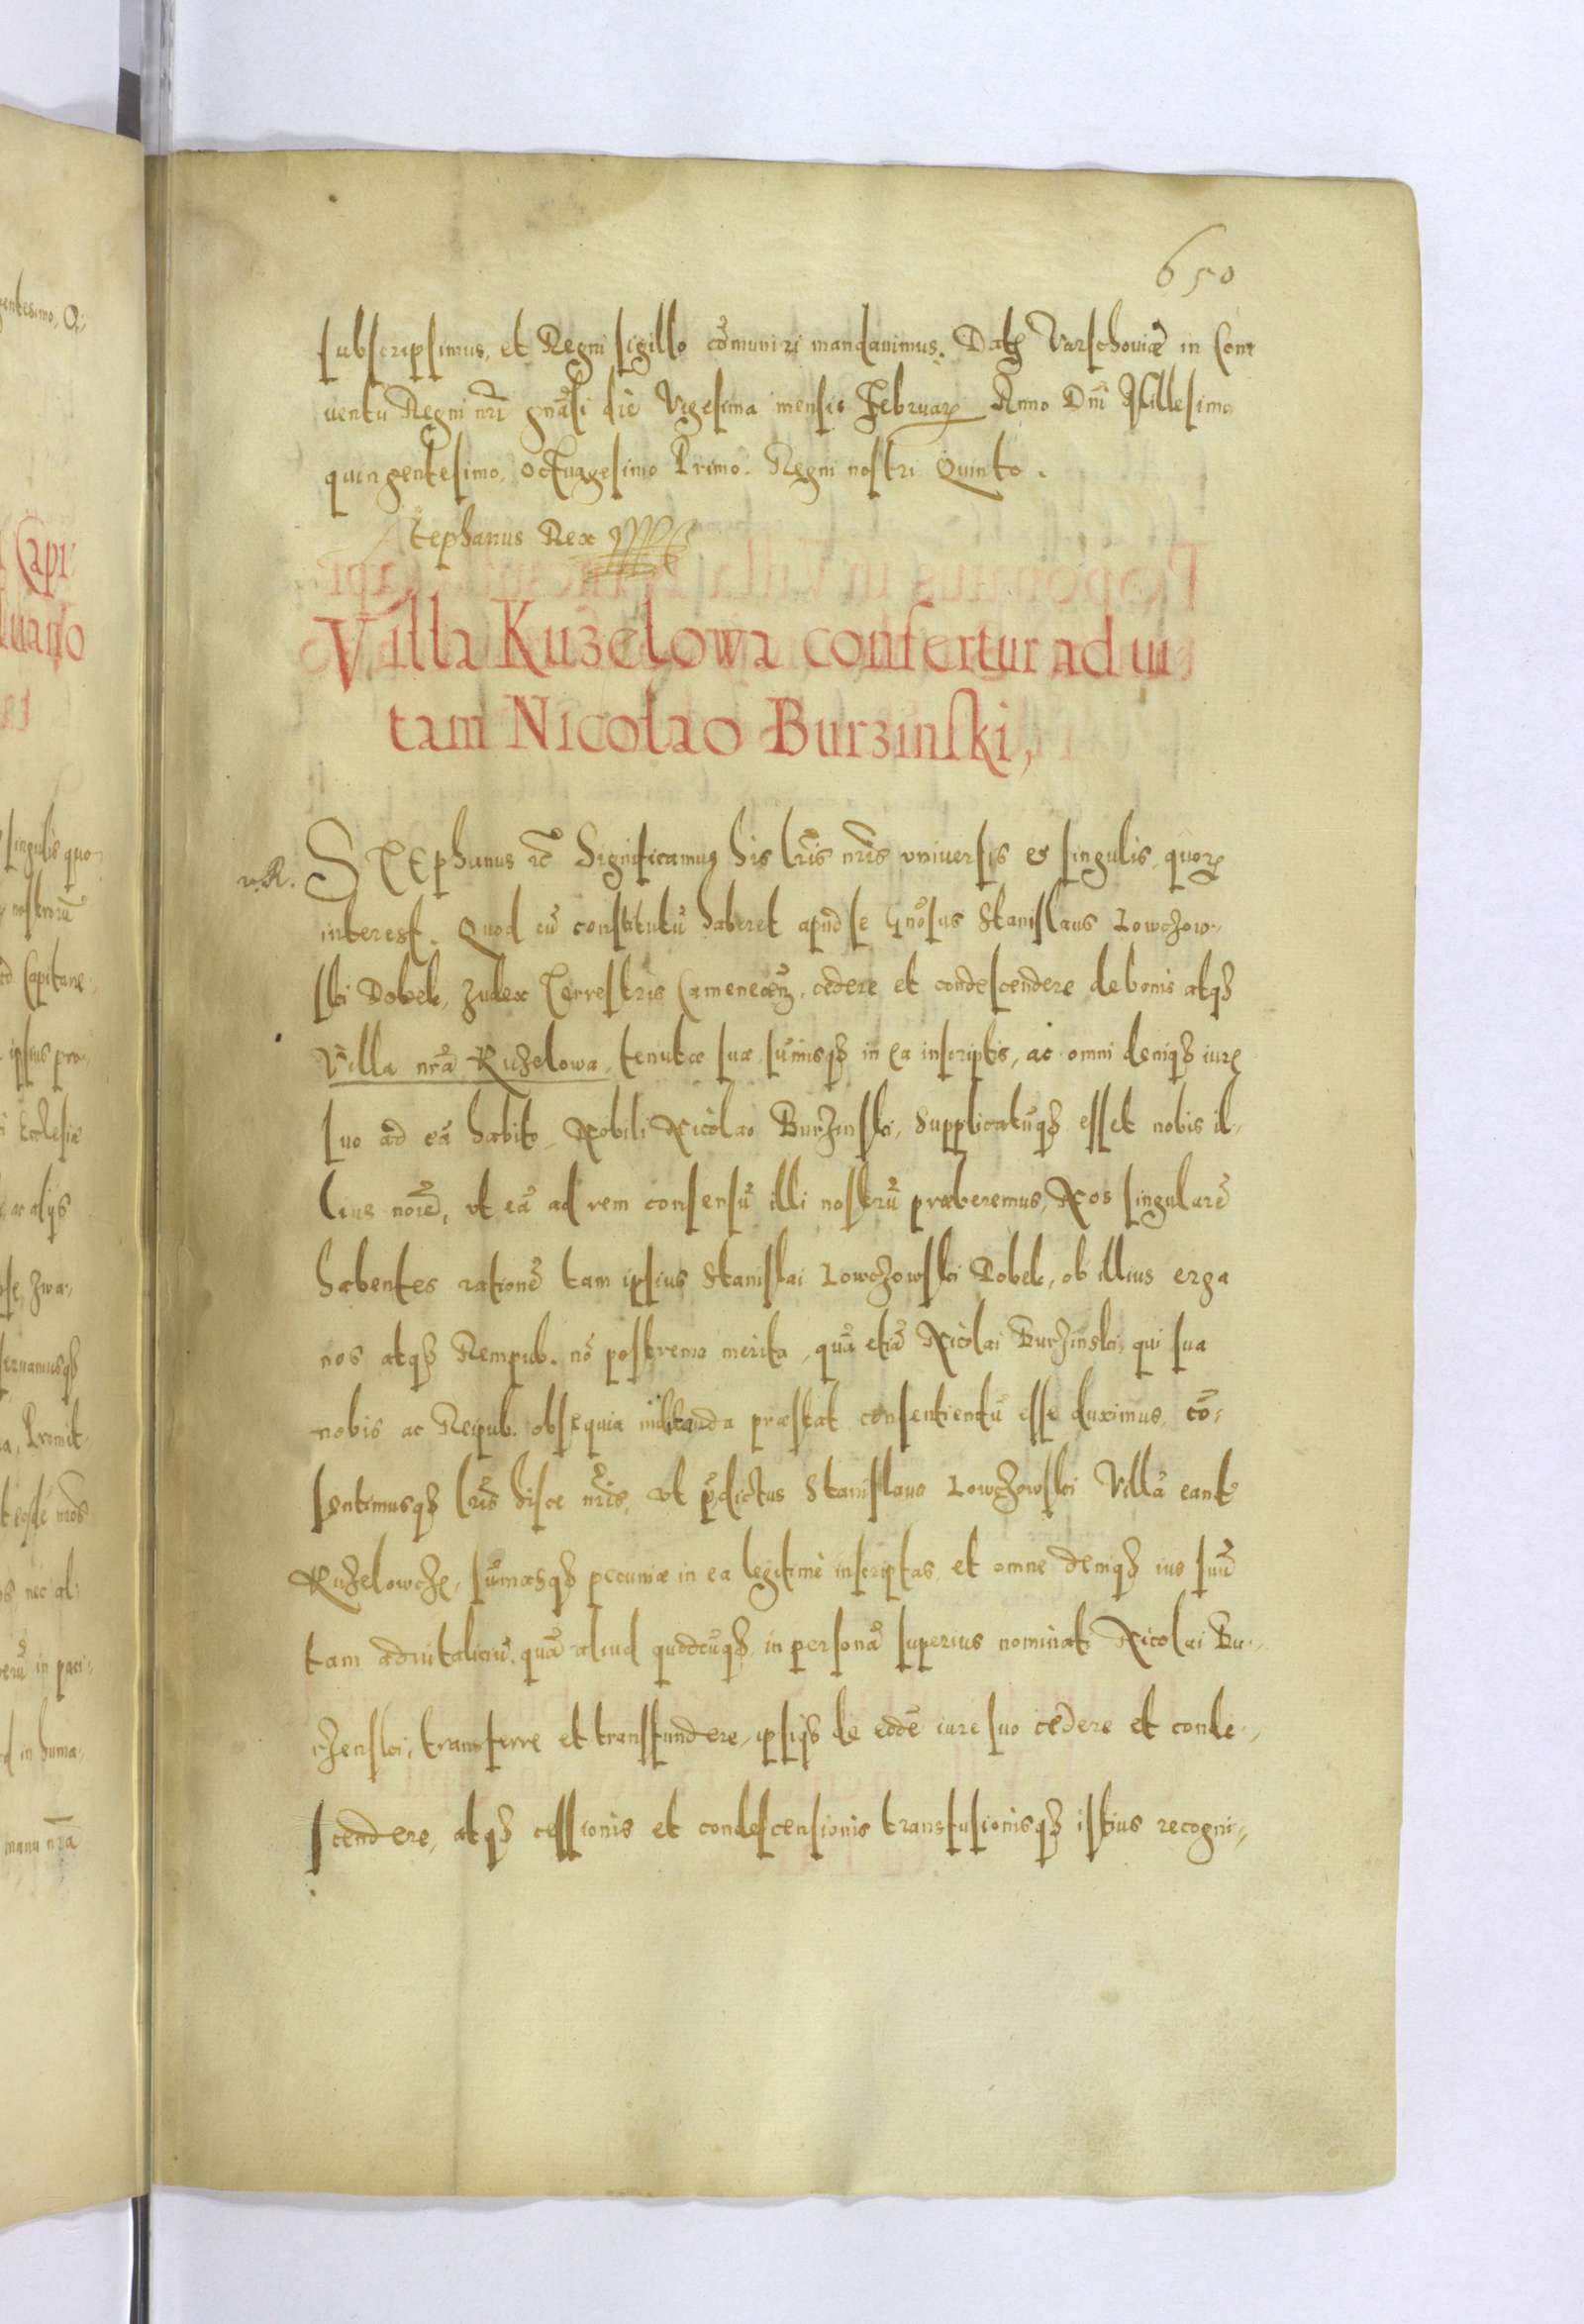 650
subscripsimus, et Regni sigillo cõmuniri mandauimus. Datũ Varschouiæ in Con
uentu Regni nrĩ gnãli die Vigesima mensis Februarȷ Anno Dnĩ Millesimo
quingentesimo, octuagesimo Primo. Regni nostri Quinto.
Stephanus Rex
Villa Kuzelowa confertur ad ui
tam Nicolao Burzinski,
v. R.
STEphanus etc̃ Significamus his lrĩs nrĩs vniuersis et singulis, quorȷ
interest. Quod cũ constitutũ haberet apud se Gñosus Stanislaus Lowczow-
ski Dobek, Iudex Terrestris Cameneceñ, cedere et condescendere de bonis atqȝ
Villa nrã Kuzelowa, tenutæ suæ, sũmisqȝ in ea inscriptis, ac omni deniqȝ iure
suo ad eã habito, Nobili Nicolao Burzinski, Supplicatũqȝ esset nobis il-
lius noiẽ, vt eã ad rem consensũ illi nostrũ præberemus, Nos singularẽ
habentes rationẽ tam ipsius Stanislai Lowczowski Dobek, ob illius erga
nos atqȝ Rempub. nõ postrema merita, quã etiã Nicolai Burzinski, qui sua
nobis ac Reipub. obsequia militanda præstat consentientũ esse duximus, cõ-
sentimusqȝ lrĩs hisce nrĩs, vt p̃dictus Stanislaus Lowczowski Villã eand̃
Kuzelowcze, sũmasqȝ pecuniæ in ea legitimè inscriptas, et omne deniqȝ ius suũ
tam aduitaliciũ, quã aliud quodcũqȝ, in personã superius nominati Nicolai Bu-
rzenski, transferre et transfundere, ipsiqȝ de eodẽ iure suo cedere et conde-
scendere, atqȝ cessionis et condescensionis transfusionisqȝ istius recogni-